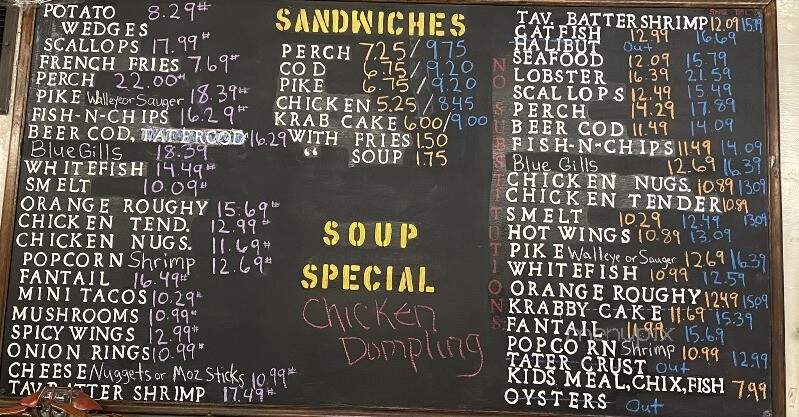 POTATO 8.29#
WEDGES
SCALLOPS 17.99#
FRENCH FRIES 7.69#
PERCH 22.00#
PIKE Walleye or Sauger 18.39#
FISH-N-CHIPS 16.29#
BEER COD, TATERCOD 16.29
Blue Gills 18.39
WHITEFISH 14.49#
SMELT 10.09#
ORANGE ROUGHY 15.69#
CHICKEN TEND. 12.99#
CHICKEN NUGS. 11.69#
POPCORN Shrimp 12.69#
FANTAIL 16.49#
MINI TACOS 10.29#
MUSHROOMS 10.99#
SPICY WINGS 12.99#
ONION RINGS 10.99#
CHEESE Nuggets or Moz Sticks 10.99#
TAV BATTER SHRIMP 17.49#
SANDWICHES
PERCH 7.25/9.75
COD 6.75/9.20
PIKE 6.75/9.20
CHICKEN 5.25/8.45
KRAB CAKE 6.00/9.00
WITH FRIES 1.50
" SOUP 1.75
SOUP
SPECIAL
Chicken
Dumpling
NO SUBSTITUTIONS
TAV. BATTER SHRIMP 12.09 15.79
CATFISH 12.99 16.69
HALIBUT Out
SEAFOOD 12.09 15.79
LOBSTER 16.39 21.59
SCALLOPS 12.49 15.49
PERCH 14.29 17.89
BEER COD 11.49 14.09
FISH-N-CHIPS 11.49 14.09
Blue Gills 12.69 16.39
CHICKEN NUGS. 10.89 13.09
CHICKEN TENDER 10.89 13.09
SMELT 10.29 12.49
HOT WINGS 10.89 13.09
PIKE Walleye or Sauger 12.69 16.39
WHITEFISH 10.99 12.59
ORANGE ROUGHY 12.49 15.09
KRABBY CAKE 11.69 15.39
FANTAIL 11.99 15.69
POPCORN Shrimp 10.99 12.99
TATER CRUST Out
KIDS MEAL, CHIX, FISH 7.99
OYSTERS Out